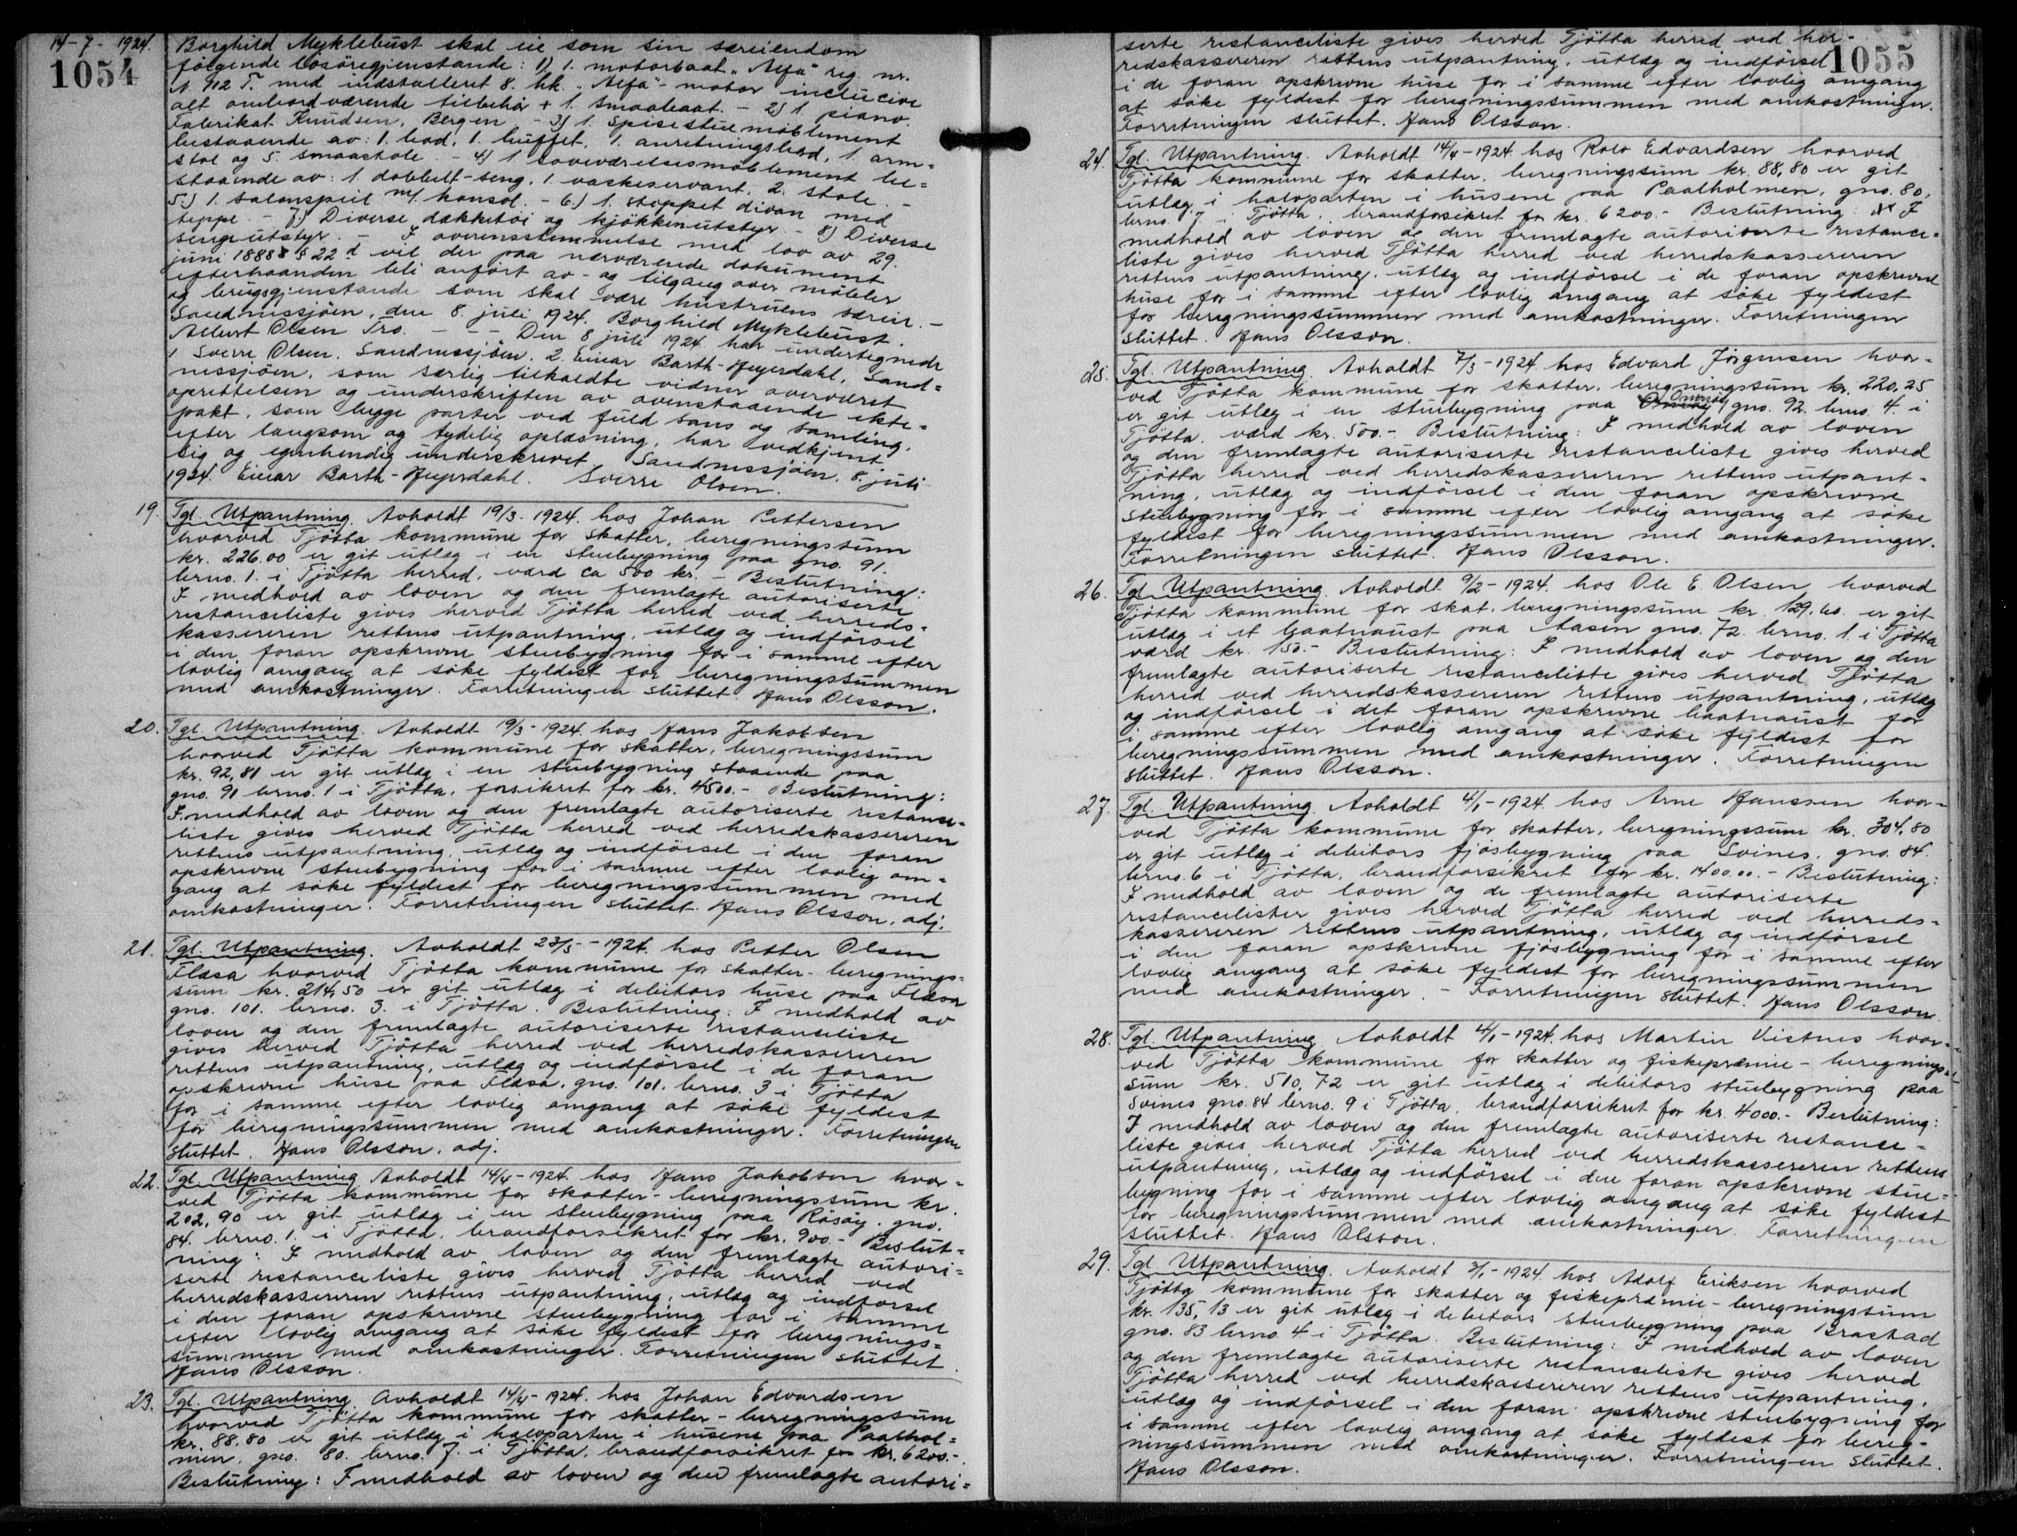 14-7- 1924.
1054
Borghild Myklebust skal eie som sin særeiendom
følgende løsøregjenstande: 1) 1. motorbaat „Alfa" reg. nr.
N. 912 T. med indstalleret 8. hk. „Alfa"- motor inclucive
alt ombord værende tilbehør + 1. smaabaat. - 2) 1 piano.
Fabrikat Knudsen, Bergen - 3) 1. spisestuemøblement
bestaaende av: 1. bord, 1. buffet, 1. anretningsbord, 1. arm=
stol og 5. smaastole. - 4) 1 soveværelsesmøblement be=
staaende av: 1. dobbelt-seng, 1. vaskeservant, 2. stole. -
5.) 1. salonspeil m/ konsol. - 6.) 1. stoppet divan med
teppe. - 7.) Diverse dækketøi og kjøkkenutstyr. - 8) Diverse
sengeutstyr. - I overensstemmelse med lov av 29.
juni 1888 § 22 d vil der paa nærværende dokument
efterhaanden bli anført av- og tilgang over møbler
og brugsgjenstande som skal være hustruens særeie. -
Sandnessjøen, den 8. juli 1924. Borghild Myklebust.
Albert Olsen Tro. - - - Den 8 juli 1924 har undertegnede
1. Sverre Olsen, Sandnessjøen. 2. Einar Barth-Heyerdahl, Sand=
nessjøen, som særlig tilkaldte vidner overværet
oprettelsen og underskriften av ovenstaaende ekte=
pakt, som begge parter ved fuld sans og samling,
efter langsom og tydelig oplæsning, har vedkjent
sig og egenhendig underskrevet. Sandnessjøen, 8. juli
1924. Einar Barth-Heyerdahl. Sverre Olsen.
19. Tgl. Utpantning. Avholdt 19/3-1924. hos Johan Pettersen
hvorved Tjøtta kommune for skatter, beregningssum
kr. 226.00 er git utlæg i en stuebygning paa gno. 91.
brno. 1. i Tjøtta herred, værd ca 500 kr. - Beslutning:
I medhold av loven og den fremlagte autoriserte
restanceliste gives herved Tjøtta herred ved herreds-
kassereren rettens utpantning, utlæg og indførsel
i den foran opskrevne stuebygning for i samme efter
lovlig omgang at søke fyldest for beregningssummen
med omkostninger. Forretningen sluttet Hans Olsson.
20. Tgl. Utpantning. Avholdt 19/3-1924. hos Hans Jakobsen
hvorved Tjøtta kommune for skatter, beregningssum
kr. 92,81 er git utlæg i en stuebygning staaende paa
gno. 91 brno. 1 i Tjøtta, forsikret for kr. 4500.- Beslutning:
I medhold av loven og den fremlagte autoriserte restance=
liste gives herved Tjøtta herred ved herredskassereren
rettens utpantning, utlæg og indførsel i den foran
opskrevne stuebygning for i samme efter lovlig om=
gang at søke fyldest for beregningssummen med
omkostninger. Forretningen sluttet. Hans Olsson, adj.
21. Tgl. Utpantning. Avholdt 23/5-1924. hos Petter Olsen
Flæsa hvorved Tjøtta kommune for skatter- beregnings=
sum kr. 214,50 er git utlæg i debitors huse paa Flæsa
gno. 101. brno. 3. i Tjøtta. Beslutning: I medhold av
loven og den fremlagte autoriserte restanceliste
gives herved Tjøtta herred ved herredskassereren
rettens utpantning, utlæg og indførsel i de foran
opskrevne huse paa Flæsa, gno. 101. brno. 3 i Tjøtta
for i samme efter lovlig omgang at søke fyldest
for beregningssummen med omkostninger. Forretningen
sluttet. Hans Olsson, adj.
22. Tgl. Utpantning Avholdt 14/4-1924. hos Hans Jakobsen hvor=
ved Tjøtta kommune for skatter- beregningssum kr.
202,90 er git utlæg i en stuebygning paa Røsøy. gno.
84. brno. 1. i Tjøtta, brandforsikret for kr. 900.- Beslut=
ning: I medhold av loven og den fremlagte autori=
serte restanceliste gives herved Tjøtta herred ved
herredskassereren rettens utpantning, utlæg og indførsel
i den foran opskrevne stuebygning for i samme
efter lovlig omgang at søke fyldest for beregnings=
summen med omkostninger. Forretningen sluttet.
Hans Olsson.
23. Tgl. Utpantning. Avholdt 14/4-1924. hos Johan Edvardsen
hvorved Tjøtta kommune for skatter- beregningssum
kr. 88.80 er git utlæg i halvparten i husene paa Paathol=
men, gno. 80. brno. 7. i Tjøtta, brandforsikret for kr. 6200.-
Beslutning: I medhold av loven og den fremlagte autori=
1055
serte restanceliste gives herved Tjøtta herred ved her-
redskassereren rettens utpantning, utlæg og indførsel
i de foran opskrevne huse for i samme efter lovlig omgang
at søke fyldest for beregningssummen med omkostninger.
Forretningen sluttet. Hans Olsson.
24. Tgl. Utpantning. Avholdt 14/4-1924. hos Rolv Edvardsen hvorved
Tjøtta kommune for skatter, beregningssum kr. 88,80 er git
utlæg i halvparten i husene paa Paatholmen, gno. 80,
brno. 7 i Tjøtta, brandforsikret for kr. 6200.- Beslutning: I
medhold av loven og den fremlagte autoriserte restance=
liste gives herved Tjøtta herred ved herredskassereren
rettens utpantning, utlæg og indførsel i de foran opskrevne
huse for i samme efter lovlig omgang at søke fyldest
for beregningssummen med omkostninger. Forretningen
sluttet. Hans Olsson.
25. Tgl. Utpantning. Avholdt 7/3-1924. hos Edvard Jørgensen hvor-
ved Tjøtta kommune for skatter, beregningssum kr. 220,25
er git utlæg i en stuebygning paa Omnøy gno. 92. brno. 4. i
Tjøtta, værd kr. 500.- Beslutning: I medhold av loven
og den fremlagte autoriserte restanceliste gives herved
Tjøtta herred ved herredskassereren rettens utpant-
ning, utlæg og indførsel i den foran opskrevne
stuebygning for i samme efter lovlig omgang at søke
fyldest for beregningssummen med omkostninger.
Forretningen sluttet. Hans Olsson.
26. Tgl. Utpantning Avholdt 9/2-1924. hos Ole E. Olsen hvorved
Tjøtta kommune for skat, beregningssum kr. 129.60. er git
utlæg i et baatnaust paa Aasen gno. 72. brno. 1. i Tjøtta
værd kr. 150.- Beslutning: I medhold av loven og den
fremlagte autoriserte restanceliste gives herved Tjøtta
herred ved herredskassereren rettens utpantning, utlæg
og indførsel i det foran opskrevne baatnaust for
i samme efter lovlig omgang at søke fyldest for
beregningssummen med omkostninger. Forretningen
sluttet. Hans Olsson.
27. Tgl. Utpantning. Avholdt 4/1-1924. hos Arne Hanssen hvor-
ved Tjøtta kommune for skatter, beregningssum kr. 304,80
er git utlæg i debitors fjøsbygning paa Svines, gno. 84.
brno. 6 i Tjøtta, brandforsikret for kr. 1400.00.- Beslutning:
I medhold av loven og de fremlagte autoriserte
restancelister gives herved Tjøtta herred ved herreds-
kassereren rettens utpantning, utlæg og indførsel
i den foran opskrevne fjøsbygning for i samme efter
lovlig omgang at søke fyldest for beregningssummen
med omkostninger. - Forretningen sluttet. Hans Olsson.
28. Tgl. Utpantning Avholdt 4/1-1924. hos Martin Vistnes hvor-
ved Tjøtta kommune for skatter og fiskepræmie - beregnings=
sum kr. 510,72 er git utlæg i debitors stuebygning paa
Svines gno. 84 brno. 9 i Tjøtta, brandforsikret for kr. 4000.- Beslutning:
I medhold av loven og den fremlagte autoriserte restance-
liste gives herved Tjøtta herred ved herredskassereren rettens
utpantning, utlæg og indførsel i den foran opskrevne stue=
bygning for i samme efter lovlig omgang at søke fyldest
for beregningssummen med omkostninger. Forretningen
sluttet. Hans Olsson.
29. Tgl. Utpantning. Avholdt 3/1-1924. hos Adolf Eriksen hvorved
Tjøtta kommune for skatter og fiskepræmie - beregningssum
kr. 135,13 er git utlæg i debitors stuebygning paa Brastad
gno. 83 brno. 4 i Tjøtta. Beslutning: I medhold av loven
og den fremlagte autoriserte restanceliste gives herved
Tjøtta herred ved herredskassereren rettens utpantning,
utlæg og indførsel i den foran opskrevne stuebygning for
i samme efter lovlig omgang at søke fyldest for bereg-
ningssummen med omkostninger. Forretningen sluttet.
Hans Olsson.